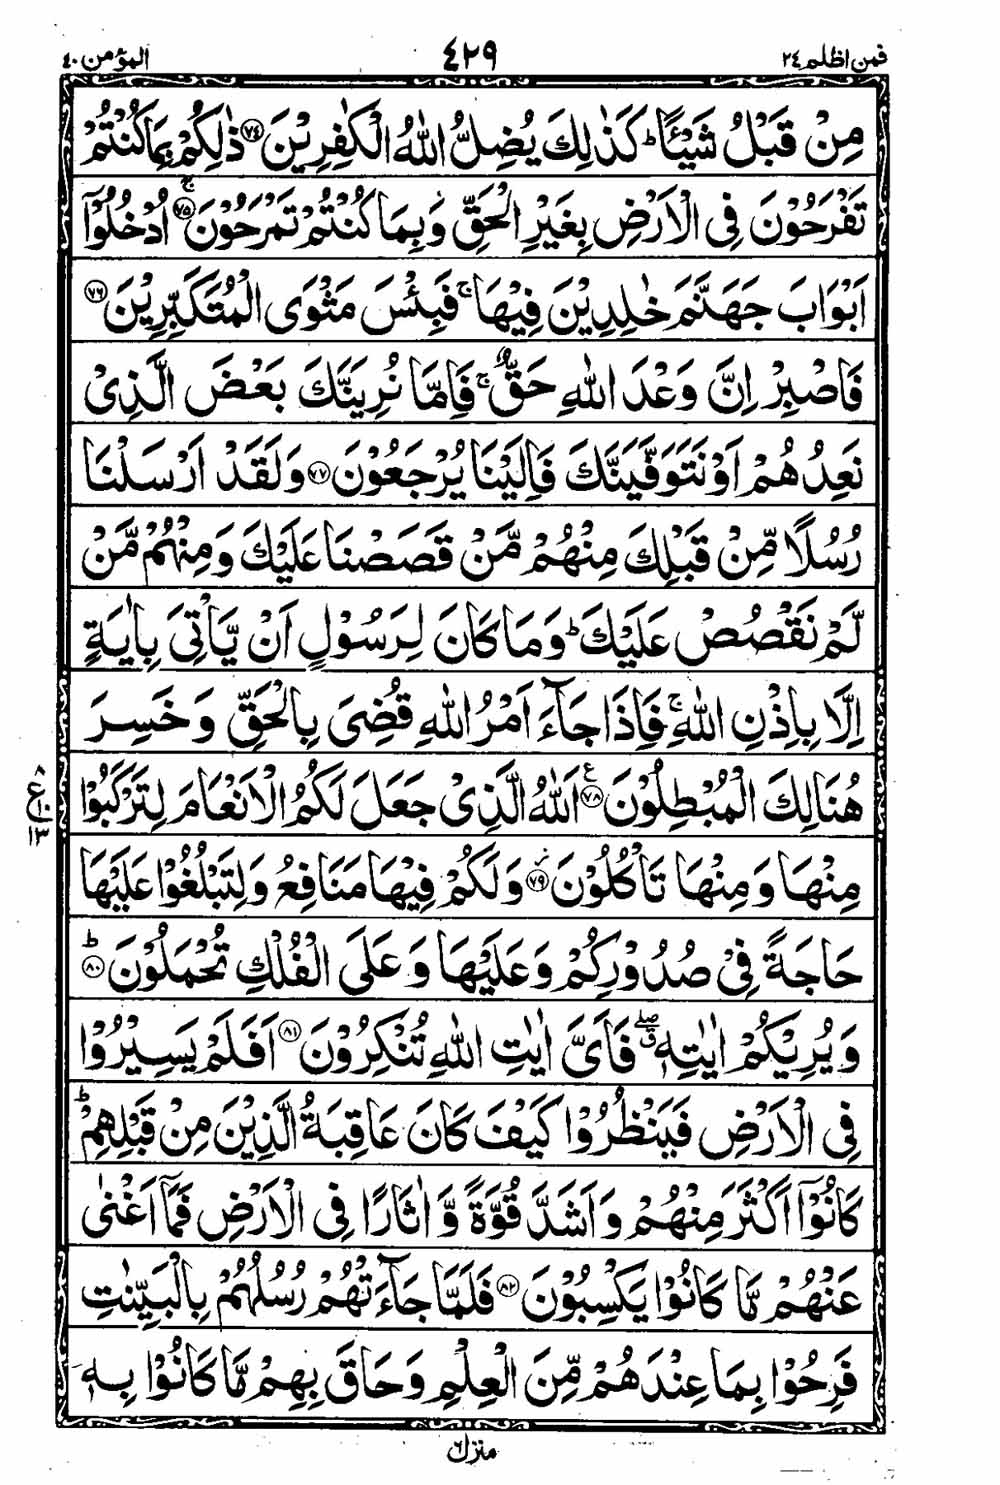 فمن اظلم ٢٤ ٤٢٩ المؤمن ٤٠
مِنْ قَبْلُ شَيْـًٔا ؕ كَذٰلِكَ يُضِلُّ اللّٰهُ الْكٰفِرِيْنَ ﴿٧٤﴾ ذٰلِكُمْ بِمَا كُنْتُمْ
تَفْرَحُوْنَ فِي الْاَرْضِ بِغَيْرِ الْحَقِّ وَبِمَا كُنْتُمْ تَمْرَحُوْنَ ۚ ﴿٧٥﴾ اُدْخُلُوْٓا
اَبْوَابَ جَهَنَّمَ خٰلِدِيْنَ فِيْهَا ۚ فَبِئْسَ مَثْوَى الْمُتَكَبِّرِيْنَ ﴿٧٦﴾
فَاصْبِرْ اِنَّ وَعْدَ اللّٰهِ حَقٌّ ۚ فَاِمَّا نُرِيَنَّكَ بَعْضَ الَّذِيْ
نَعِدُهُمْ اَوْ نَتَوَفَّيَنَّكَ فَاِلَيْنَا يُرْجَعُوْنَ ﴿٧٧﴾ وَلَقَدْ اَرْسَلْنَا
رُسُلًا مِّنْ قَبْلِكَ مِنْهُمْ مَّنْ قَصَصْنَا عَلَيْكَ وَمِنْهُمْ مَّنْ
لَّمْ نَقْصُصْ عَلَيْكَ ؕ وَمَا كَانَ لِرَسُوْلٍ اَنْ يَّاْتِيَ بِاٰيَةٍ
اِلَّا بِاِذْنِ اللّٰهِ ۚ فَاِذَا جَآءَ اَمْرُ اللّٰهِ قُضِيَ بِالْحَقِّ وَخَسِرَ
هُنَالِكَ الْمُبْطِلُوْنَ ﴿٧٨﴾ ع اَللّٰهُ الَّذِيْ جَعَلَ لَكُمُ الْاَنْعَامَ لِتَرْكَبُوْا
٨ ع ١٠ ١٣
مِنْهَا وَمِنْهَا تَاْكُلُوْنَ ؗ ﴿٧٩﴾ وَلَكُمْ فِيْهَا مَنَافِعُ وَلِتَبْلُغُوْا عَلَيْهَا
حَاجَةً فِيْ صُدُوْرِكُمْ وَعَلَيْهَا وَعَلَى الْفُلْكِ تُحْمَلُوْنَ ؕ ﴿٨٠﴾
وَيُرِيْكُمْ اٰيٰتِهٖ ۖق فَاَيَّ اٰيٰتِ اللّٰهِ تُنْكِرُوْنَ ﴿٨١﴾ اَفَلَمْ يَسِيْرُوْا
فِي الْاَرْضِ فَيَنْظُرُوْا كَيْفَ كَانَ عَاقِبَةُ الَّذِيْنَ مِنْ قَبْلِهِمْ ؕ
كَانُوْٓا اَكْثَرَ مِنْهُمْ وَاَشَدَّ قُوَّةً وَّاٰثَارًا فِي الْاَرْضِ فَمَآ اَغْنٰى
عَنْهُمْ مَّا كَانُوْا يَكْسِبُوْنَ ﴿٨٢﴾ فَلَمَّا جَآءَتْهُمْ رُسُلُهُمْ بِالْبَيِّنٰتِ
فَرِحُوْا بِمَا عِنْدَهُمْ مِّنَ الْعِلْمِ وَحَاقَ بِهِمْ مَّا كَانُوْا بِهٖ
منزل ٦